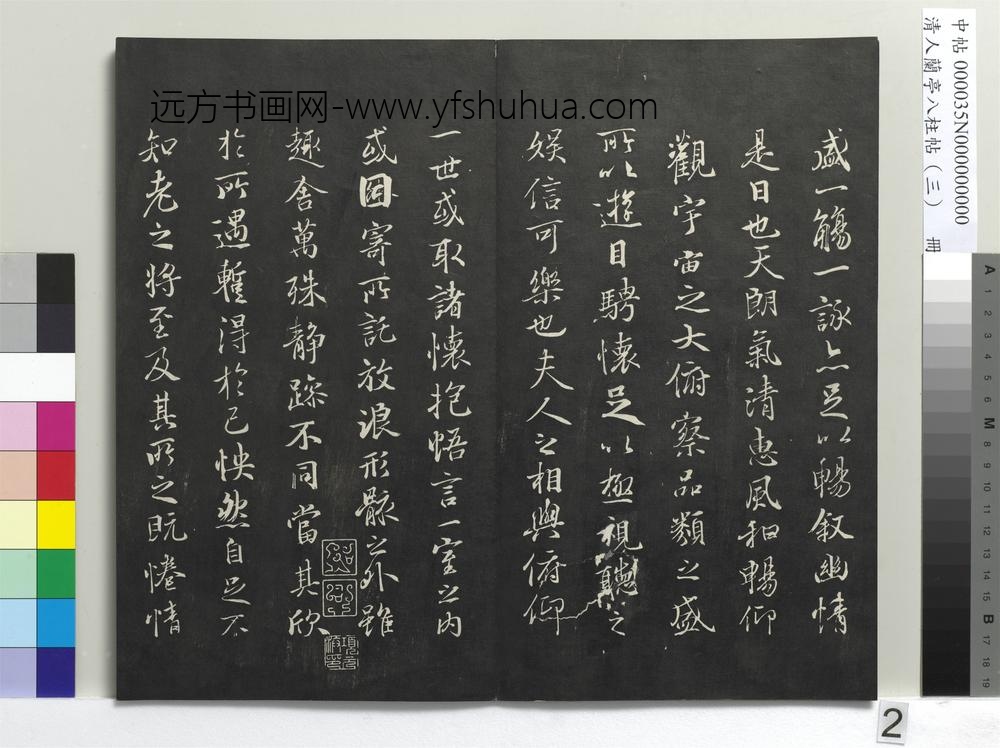 远方书画网-www.yfshuhua.com
中帖 000035N000000000
清人蘭亭八柱帖（三） 冊
盛一觴一詠亦足以暢敘幽情
是日也天朗氣清惠風和暢仰
觀宇宙之大俯察品類之盛
所以遊目騁懷足以極視聽之
娛信可樂也夫人之相與俯仰
一世或取諸懷抱悟言一室之內
或因寄所託放浪形骸之外雖
趣舍萬殊靜躁不同當其欣
於所遇暫得於己怏然自足不
知老之將至及其所之既惓情
A 1 2 3 4 5 6 M 8 9 10 11 12 13 14 15 B 17 18 19
2